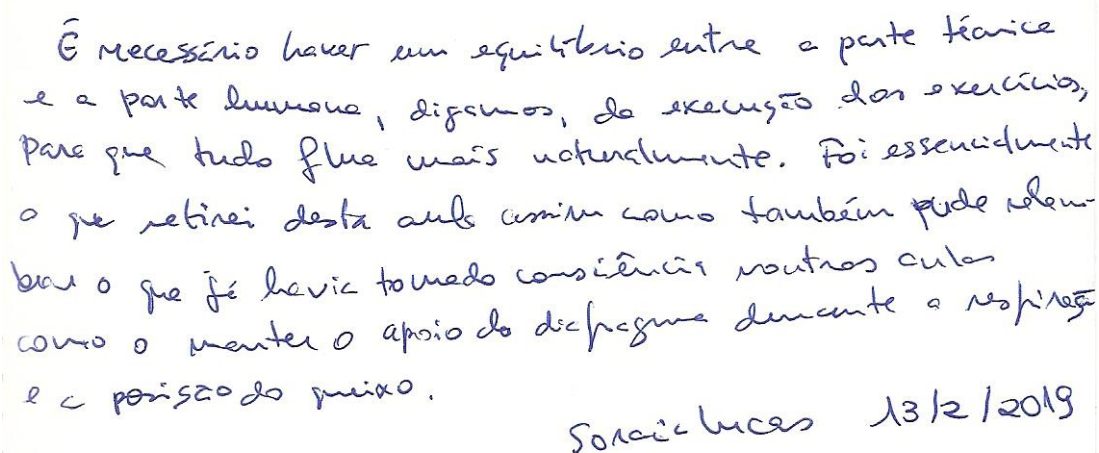 É necessário haver um equilíbrio entre a parte técnica
e a parte humana, digamos, da execução dos exercícios,
para que tudo flua mais naturalmente. Foi essencialmente
o que retirei desta aula assim como também pude relem-
brar o que já havia tomado consciência noutras aulas
como o manter o apoio do diafragma durante a respiração
e a posisão do queixo.
Soraia Lucas 13/2/2019